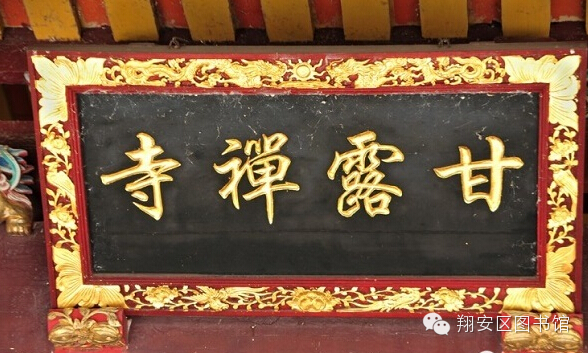 甘露禪寺
翔安区图书馆